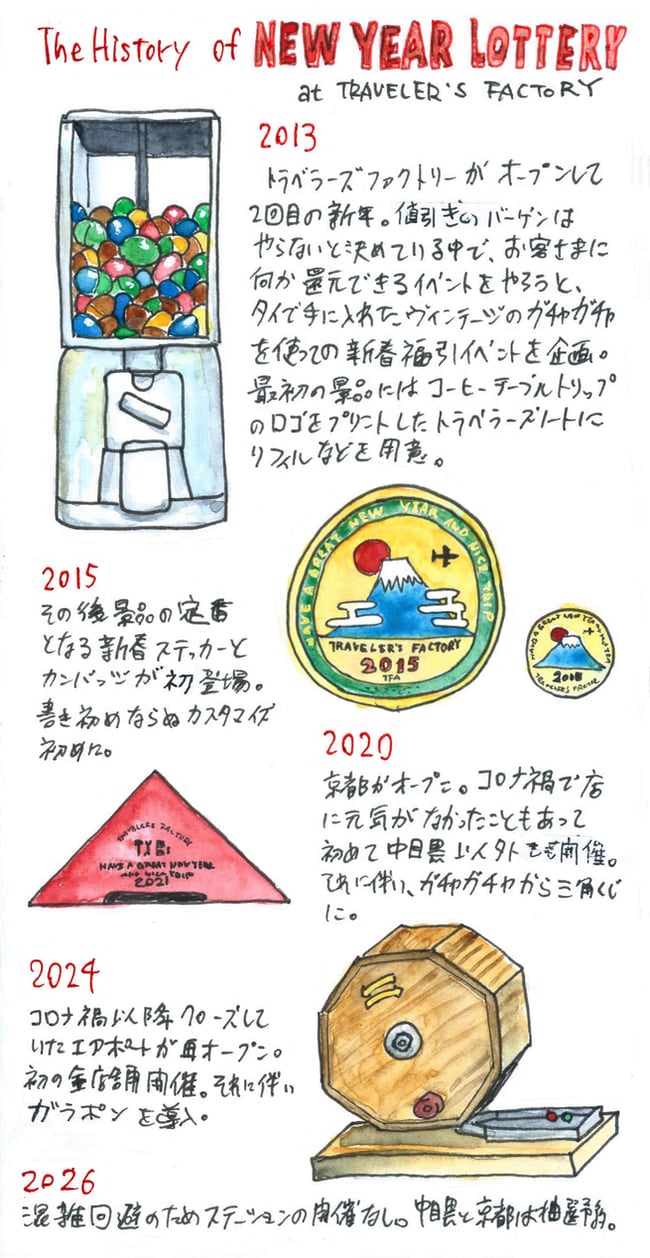 The History of NEW YEAR LOTTERY
at TRAVELER'S FACTORY
2013
トラベラーズファクトリーがオープンして
2回目の新年。値引きのバーゲンは
やらないと決めている中で、お客さまに
何か還元できるイベントをやろうと、
タイで手に入れたヴィンテージのガチャガチャ
を使っての新春福引イベントを企画。
最初の景品にはコーヒーテーブルトリップ
のロゴをプリントしたトラベラーズノートに
リフィルなどを用意。
HAVE A GREAT NEW YEAR AND NICE TRIP
TRAVELER'S FACTORY
2015
TFA
2015
TRAVELER'S FACTOR
2015
その後景品の定番
となる新春ステッカーと
カンバッヂが初登場。
書き初めならぬカスタマイズ
初めに。
2020
京都がオープン。コロナ禍で店
に元気がなかったこともあって
初めて中目黒以外でも開催。
それに伴い、ガチャガチャから三角くじ
に。
HAVE A GREAT NEW YEAR
AND NICE TRIP
2021
2024
コロナ禍以降クローズして
いたエアポートが再オープン。
初の全店舗開催。それに伴い
ガラポンを導入。
2026
混雑回避のためステーションの開催なし。中目黒と京都は抽選予約。